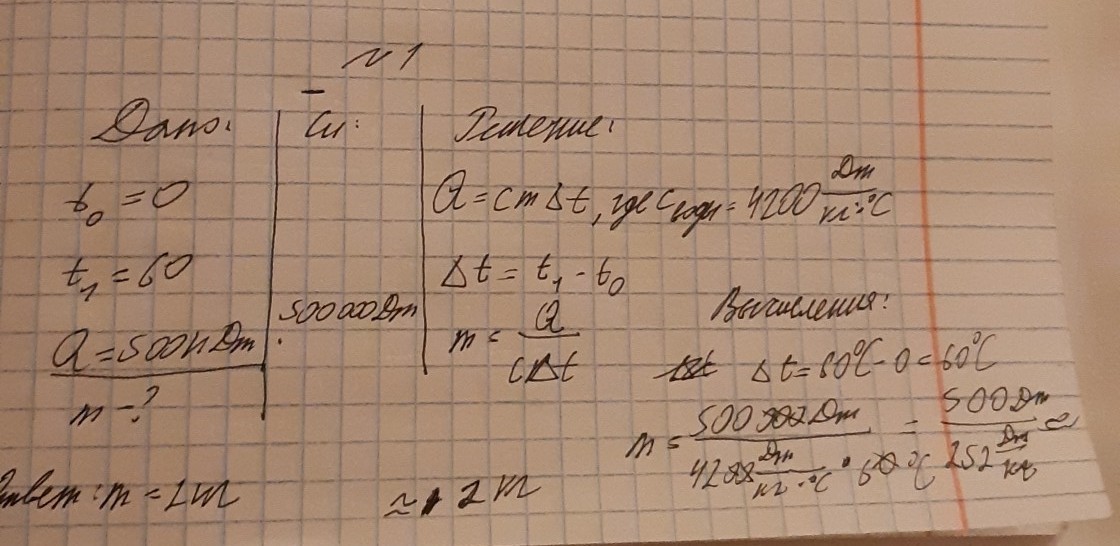 №1
Дано:
t₀ = 0
t₁ = 60
Q = 500кДж
m - ?
Си:
500000Дж
Решение:
Q = cmΔt, где c воды = 4200 Дж/кг·°C
Δt = t₁ - t₀
m = Q/cΔt
Вычисления:
Δt = 60°C - 0 = 60°C
m = 500000Дж/4200 Дж/кг·°C · 60°C = 500Дж/252 Дж/кг ≈
≈ 2 кг
Ответ: m = 2кг